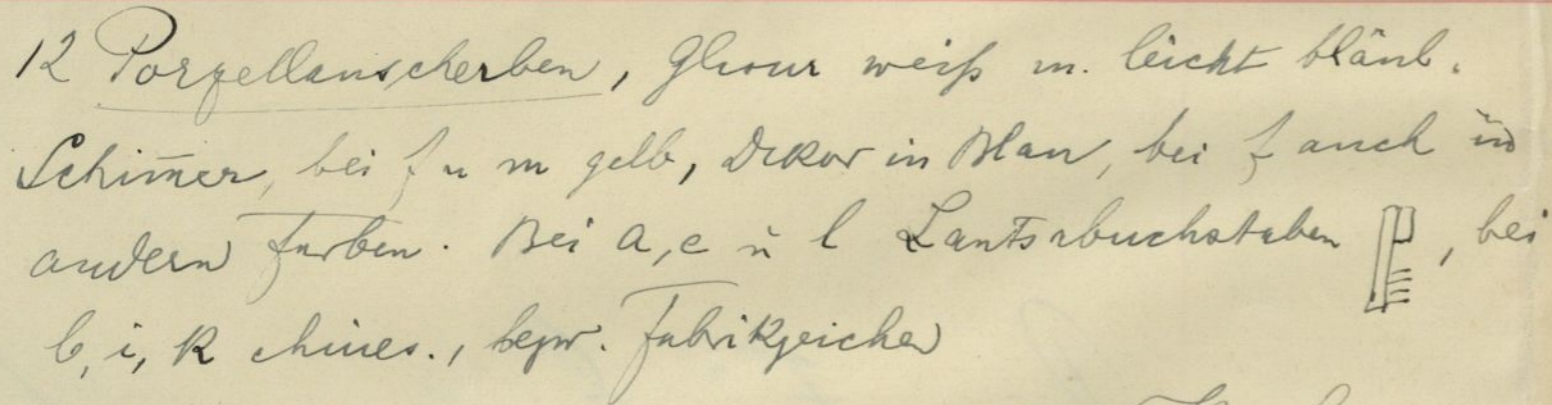 12 Porzellanscherben, Glasur weiß m. leicht bläul.
Schim̄er, bei f u m gelb, Dekor in Blau, bei f auch in
andern Farben. Bei a, e u l Lantsabuchstaben, bei
b, i, k chines., bezw. Fabrikzeichen